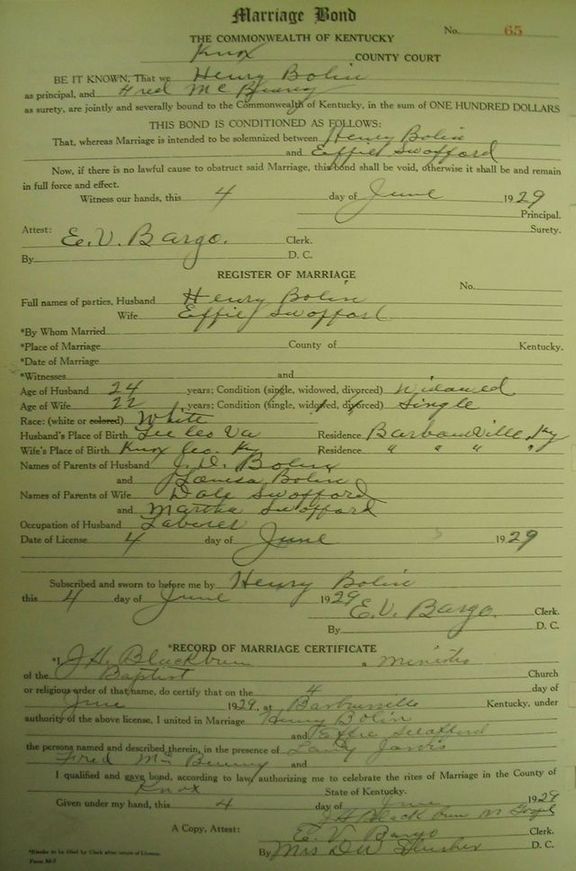 Marriage Bond
No. 65
THE COMMONWEALTH OF KENTUCKY
Knox COUNTY COURT
BE IT KNOWN, That we Henry Bolin
as principal, and Fred Mc
as surety, are jointly and severally bound to the Commonwealth of Kentucky, in the sum of ONE HUNDRED DOLLARS
THIS BOND IS CONDITIONED AS FOLLOWS:
That, whereas Marriage is intended to be solemnized between Henry Bolin
and Effie Swofford
Now, if there is no lawful cause to obstruct said Marriage, this bond shall be void, otherwise it shall be and remain
in full force and effect.
Witness our hands, this 4 day of June 1929
Principal.
Surety.
Attest: E. V. Bargo. Clerk.
By D. C.
REGISTER OF MARRIAGE
No.
Full names of parties, Husband Henry Bolin
Wife Effie Swofford
*By Whom Married
*Place of Marriage County of Kentucky.
*Date of Marriage
*Witnesses and
Age of Husband 24 years; Condition (single, widowed, divorced) Widowed
Age of Wife 22 years; Condition (single, widowed, divorced) Single
Race: (white or colored) White
Husband's Place of Birth Lee Co Va Residence Barbourville, Ky
Wife's Place of Birth Knox Co. Ky Residence " " " "
Names of Parents of Husband J. D. Bolin
and Louisa Bolin
Names of Parents of Wife Dale Swofford
and Martha Swofford
Occupation of Husband Laborer
Date of License 4 day of June 1929
Subscribed and sworn to before me by Henry Bolin
this 4 day of June 1929
E. V. Bargo. Clerk.
By D. C.
*RECORD OF MARRIAGE CERTIFICATE
*I J. H. Blackburn a Minister
of the Baptist Church
or religious order of that name, do certify that on the 4 day of
June 1929, at Barbourville Kentucky, under
authority of the above license, I united in Marriage Henry Bolin
and Effie Swofford
the persons named and described therein, in the presence of Jarvis
Fred Mc and
I qualified and gave bond, according to law, authorizing me to celebrate the rites of Marriage in the County of
Knox State of Kentucky.
Given under my hand, this 4 day of June 1929
J H Blackburn
A Copy, Attest: E. V. Bargo Clerk.
By Mrs D W D. C.
*Blanks to be filled by Clerk after return of License.